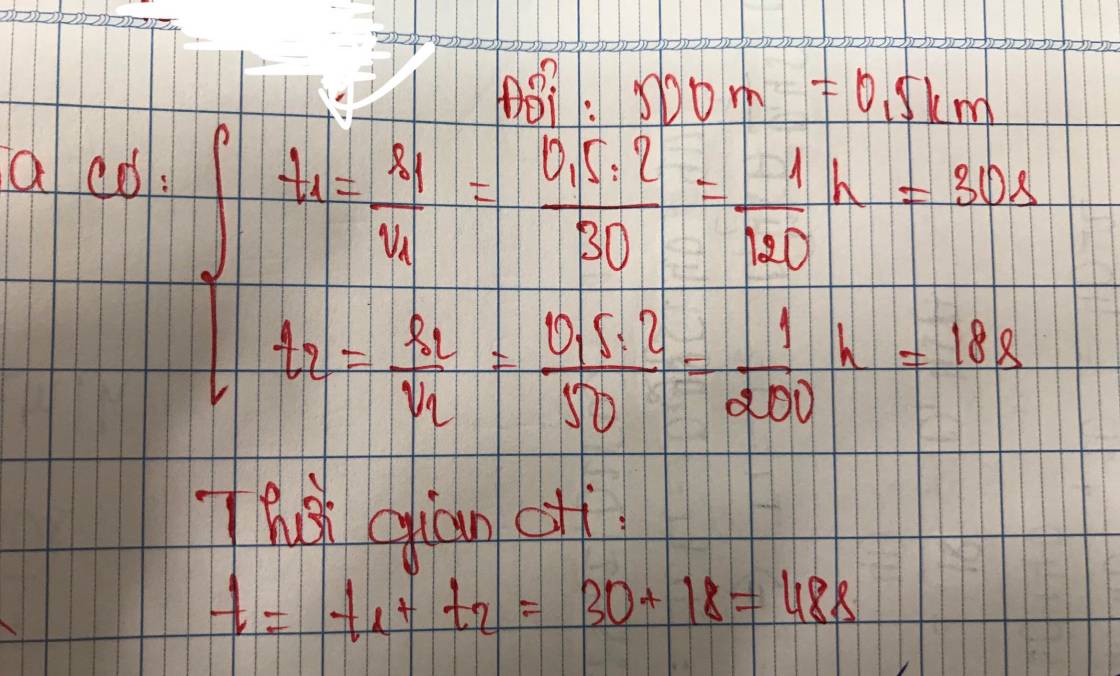 Đổi: 500m = 0,5km
Ta có: { t1 = s1/v1 = 0,5:2/30 = 1/120 h = 30s
t2 = s2/v2 = 0,5:2/50 = 1/200 h = 18s
Thời gian ôti:
t = t1 + t2 = 30 + 18 = 48s